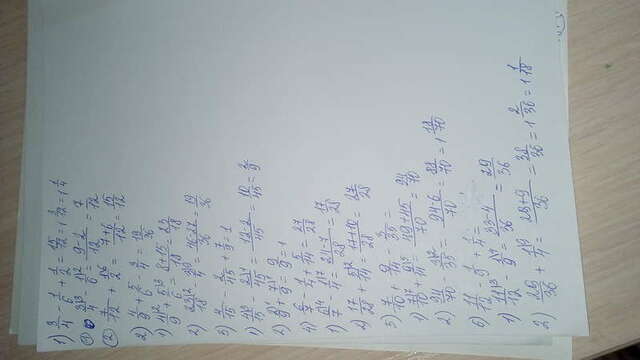 1) 3/4 - 1/6 + 1/2 = 15/12 = 1 3/12 = 1 1/4
① 3\3/4 - 1\2/6 = 9-2/12 = 7/12
② 7/12 + 1\6/2 = 7+6/12 = 15/12
2) 4/9 + 5/6 - 3/4 = 19/36
1) 4\2/9 + 5\3/6 = 8+15/18 = 23/18
2) 23\2/18 - 3\9/4 = 46-27/36 = 19/36
3) 4/15 - 2/45 + 7/9 = 1
1) 4\3/15 - 2\1/45 = 12-2/45 = 10/45 = 2/9
2) 2\1/9 + 7\1/9 = 9/9 = 1
4) 6/7 - 1/4 + 5/14 = 27/28
1) 6\4/7 - 1\7/4 = 24-7/28 = 17/28
2) 17/28 + 5\2/14 = 17+10/28 = 27/28
5) 7/10 + 9/14 - 3/35 =
1) 7\7/10 + 9\5/14 = 49+45/70 = 94/70
2) 94/70 - 3\2/35 = 94-6/70 = 88/70 = 1 18/70
6) 11/12 - 1/9 + 1/4 =
1) 11\3/12 - 1\4/9 = 33-4/36 = 29/36
2) 29/36 + 1\9/4 = 29+9/36 = 38/36 = 1 2/36 = 1 1/18